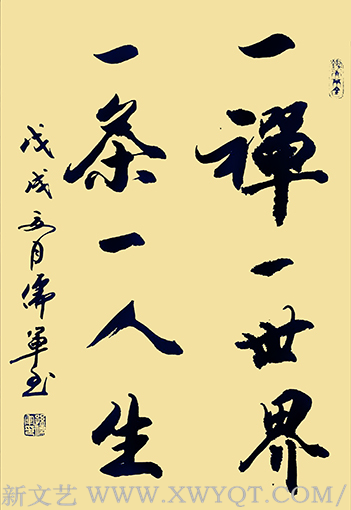 一禅一世界
一茶一人生
戊戌五月儒军书
新文艺 WWW.XWYQT.COM/